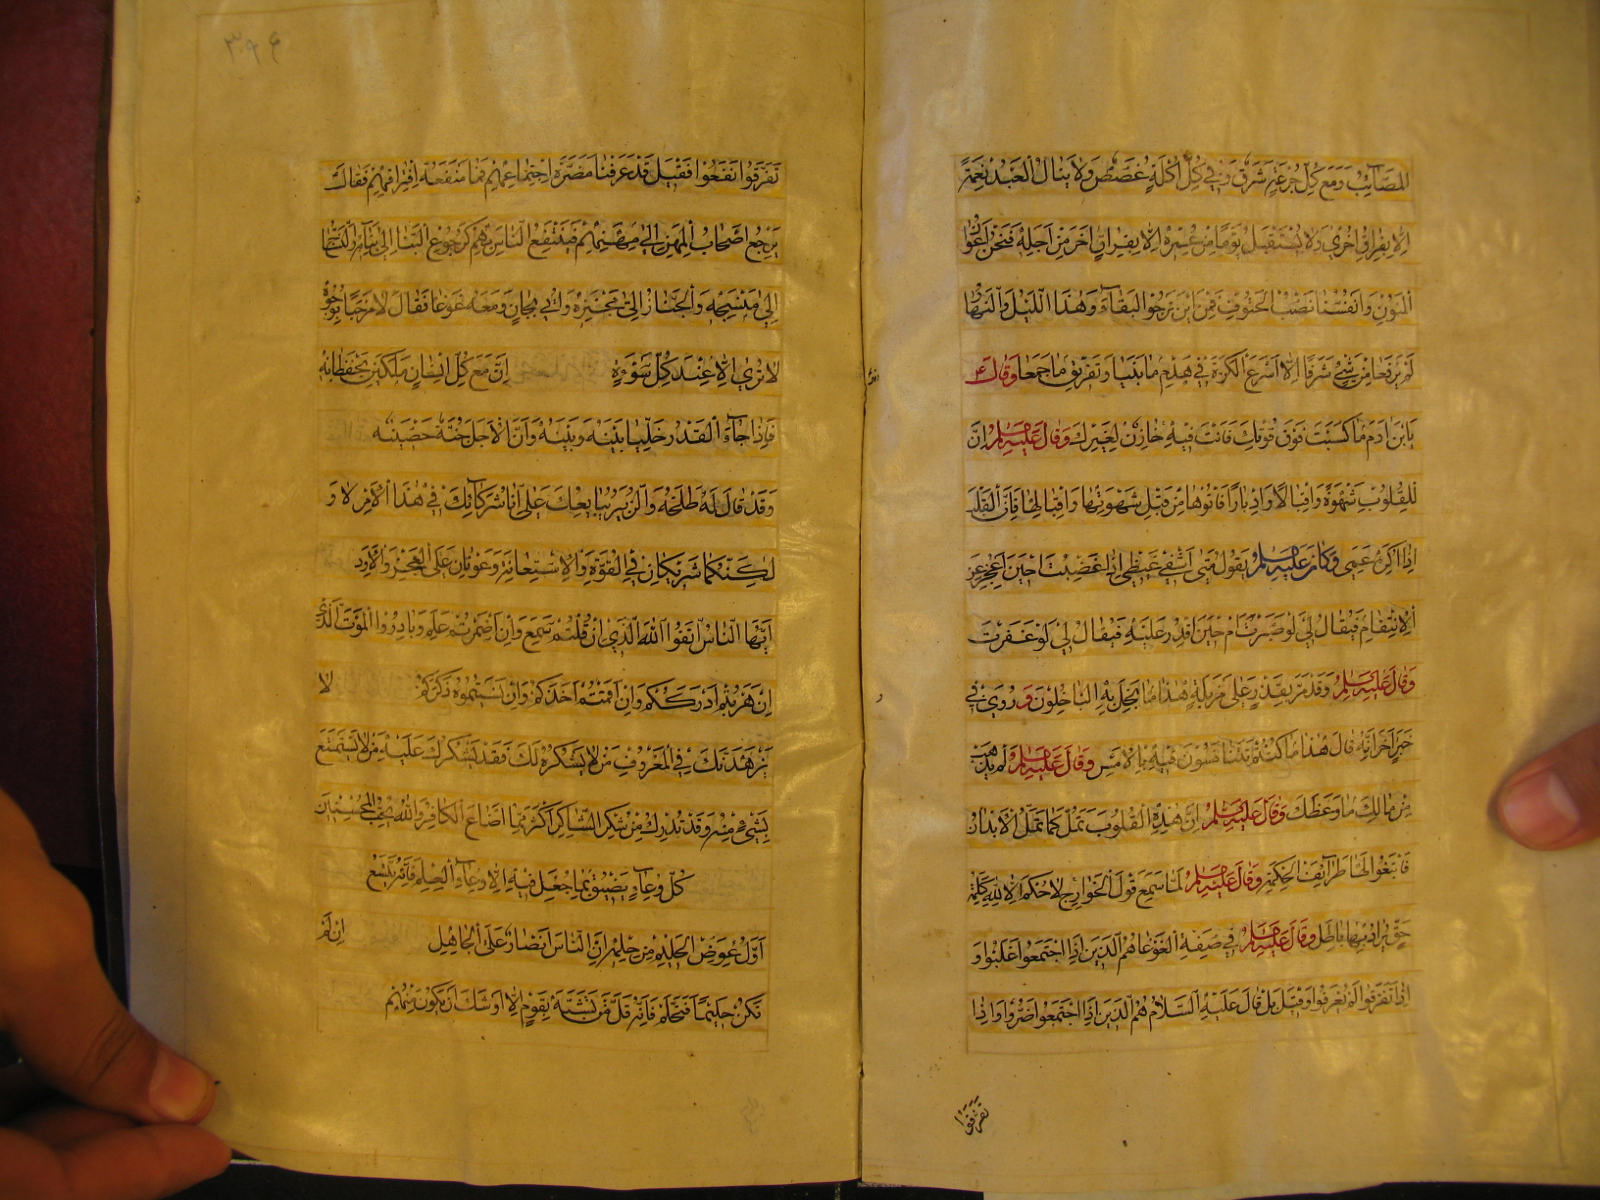 المصائب ومع كل جرعة شرق وفي كل اكلة غصص ولا ينال العبد نعمة
الا بفراق اخرى ولا يستقبل يوما من عمره الا بفراق اخر من اجله فنحن اعوان
المنون وانفسنا نصب الحتوف فمن اين نرجوا البقاء وهذا الليل والنهار
لم يرفعا من شيء شرفا الا اسرعا الكرة في هدم ما بنيا وتفريق ما جمعا وقال ع
يابن ادم ما كسبت فوق قوتك فانت فيه خازن لغيرك وقال عليه سلم ان
للقلوب شهوة واقبالا وادبارا فاتوها من قبل شهوتها واقبالها فان القلب
اذا اكره عمى وكان عليه سلم يقول متى اشفي غيظي اذا غضبت احين اعجز عن
الانتقام فيقال لي لو صبرت ام حين اقدر عليه فيقال لي لو غفرت
وقال عليه سلم وقد مر بقذر على مزبلة هذا ما بخل به الباخلون وروي في
خبر اخر انه قال هذا ما كنتم تتنافسون فيه بالامس وقال عليه سلم لم يذهب
من مالك ما وعظك وقال عليه سلم ان هذه القلوب تمل كما تمل الابدان
فابتغوا لها طرائف الحكمة وقال عليه سلم لما سمع قول الخوارج لا حكم الا لله كلمة
حق يراد بها باطل وقال عليه سلم في صفة الغوغا هم الذين اذا اجتمعوا غلبوا و
اذا تفرقوا لم يعرفوا وقيل بل قال عليه السلام هم الذين اذا اجتمعوا ضروا واذا
تفرقوا
۳۹۶
تفرقوا نفعوا فقيل قد عرفنا مضرة اجتماعهم فما منفعة افتراقهم فقال
يرجع اصحاب المهن الى مهنهم فينتفع الناس بهم كرجوع البناء الى بنائه والنساج
الى منسجه والخباز الى مخبزه واتي بجان ومعه غوغا فقال لا مرحبا بوجوه
لا ترى الا عند كل سوءة ان مع كل انسان ملكين يحفظانه
فاذا جاء القدر خليا بينه وبينه وان الاجل جنة حصينة
وقد قال له طلحة والزبير نبايعك على انا شركاؤك في هذا الامر لا و
لكنكما شريكان في القوة والاستعانة وعونان على العجز والاود
ايها الناس اتقوا الله الذي ان قلتم سمع وان اضمرتم علم وبادروا الموت الذي
ان هربتم ادرككم وان اقمتم اخذكم وان نسيتموه ذكركم لا
يزهدنك في المعروف من لا يشكره لك فقد يشكرك عليه من لا يستمتع
بشيء منه وقد تدرك من شكر الشاكر اكثر مما اضاع الكافر والله يحب المحسنين
كل وعاء يضيق بما جعل فيه الا وعاء العلم فانه يتسع
اول عوض الحليم من حلمه ان الناس انصار على الجاهل ان لم
تكن حليما فتحلم فانه قل من تشبه بقوم الا اوشك ان يكون منهم